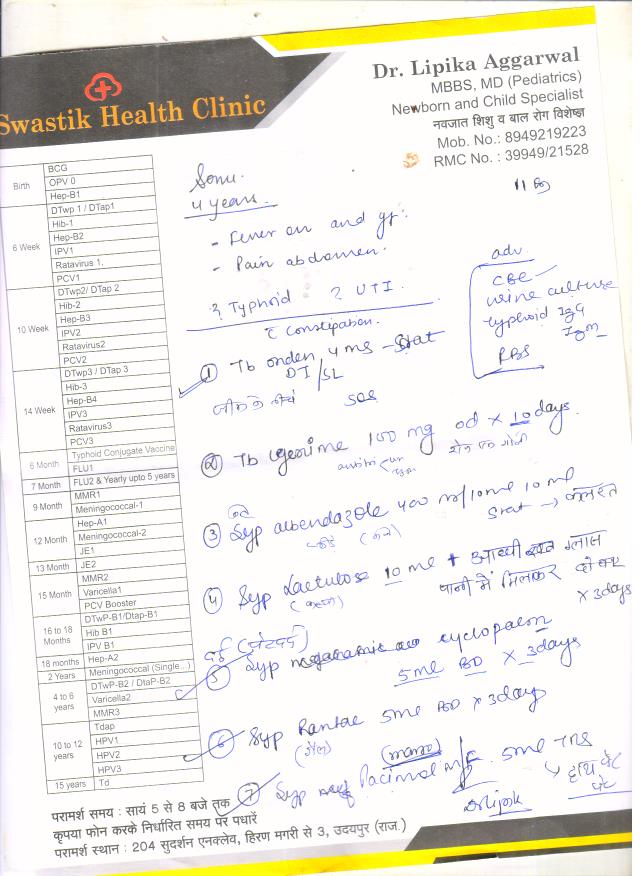 Swastik Health Clinic
Dr. Lipika Aggarwal
MBBS, MD (Pediatrics)
Newborn and Child Specialist
नवजात शिशु व बाल रोग विशेषज्ञ
Mob. No.: 8949219223
RMC No. : 39949/21528
Birth
BCG
OPV 0
Hep-B1
6 Week
DTwp 1 / DTap1
Hib-1
Hep-B2
IPV1
Ratavirus 1.
PCV1
10 Week
DTwp2/ DTap 2
Hib-2
Hep-B3
IPV2
Ratavirus2
PCV2
14 Week
DTwp3 / DTap 3
Hib-3
Hep-B4
IPV3
Ratavirus3
PCV3
6 Month
Typhoid Conjugate Vaccine
FLU1
7 Month
FLU2 & Yearly upto 5 years
9 Month
MMR1
Meningococcal-1
12 Month
Hep-A1
Meningococcal-2
JE1
13 Month
JE2
15 Month
MMR2
Varicella1
PCV Booster
16 to 18 Months
DTwP-B1/Dtap-B1
Hib B1
IPV B1
18 months
Hep-A2
2 Years
Meningococcal (Single...)
4 to 6 years
DTwP-B2 / DtaP-B2
Varicella2
MMR3
10 to 12 years
Tdap
HPV1
HPV2
HPV3
15 years
Td
Sonu.
4 years.
- Fever on and
- Pain abdomen.
? Typhoid ? UTI.
c Constipation.
adv.
CBC
urine culture
typhoid IgG
IgM
RBS
① Tb onden 4 mg - Stat
DT/SL
जीभ के नीचे SOS
② Tb 100 mg od x 10 days.
③ Syp albendazole 400 m/10ml 10 ml
Stat →
④ Syp Lactulose 10 ml + आधी गलास
पानी में मिलाकर दो बार
x 3days
दर्द (पेट दर्द)
⑤ Syp cyclopalm
5ml BD x 3days
⑥ Syp Rantac 5ml BD x 3day
(गैस)
⑦ Syp Pacimol m/f 5ml TDS
परामर्श समय : सायं 5 से 8 बजे तक
कृपया फोन करके निर्धारित समय पर पधारें
परामर्श स्थान : 204 सुदर्शन एनक्लेव, हिरण मगरी से 3, उदयपुर (राज.)